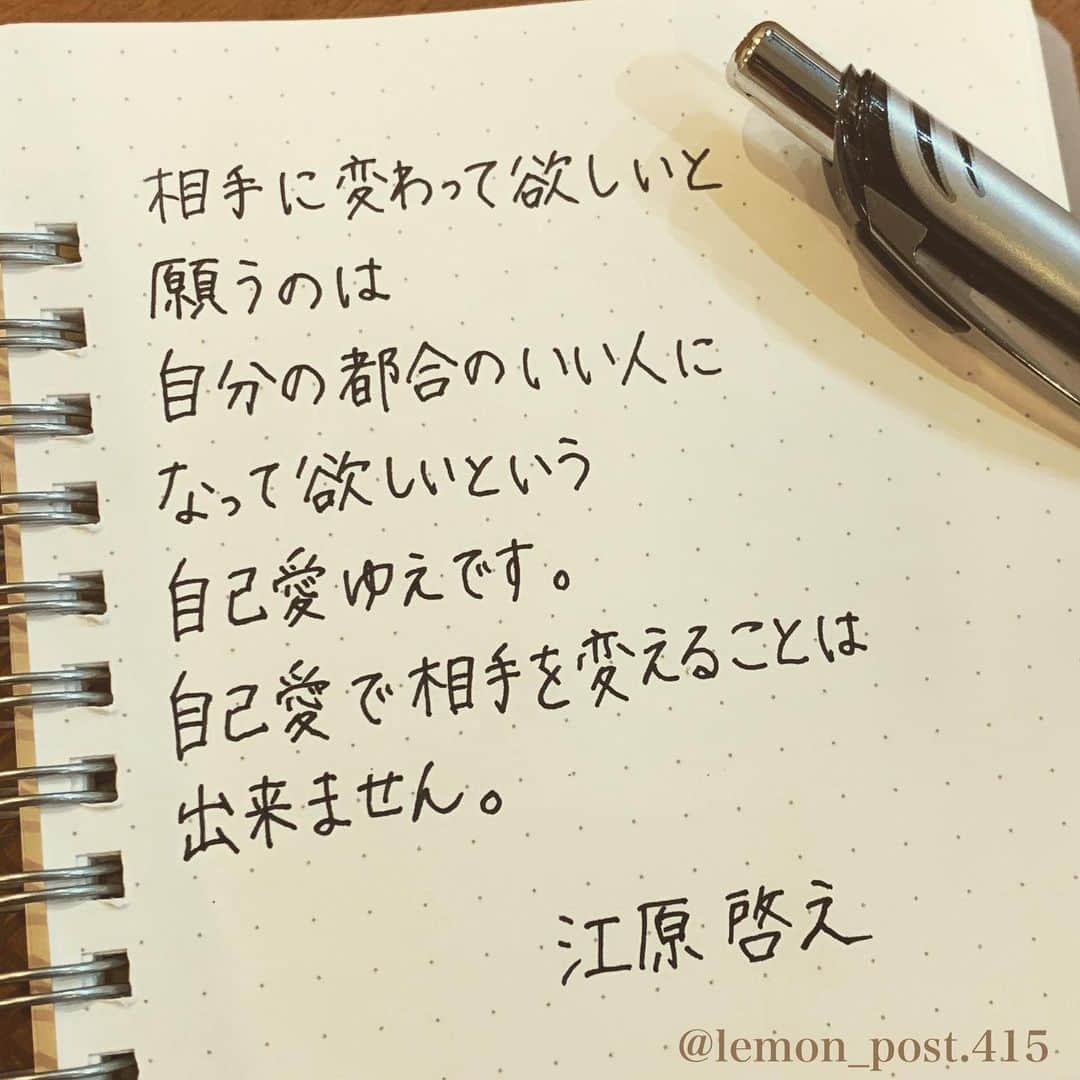 相手に変わって欲しいと
願うのは
自分の都合のいい人に
なって欲しいという
自己愛ゆえです。
自己愛で相手を変えることは
出来ません。
江原 啓え
@lemon_post.415